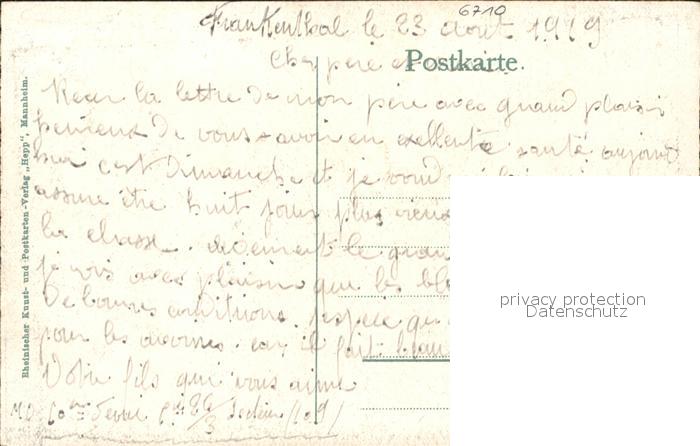 6710
Frankenthal le 23 août 1919
Cher père et
Postkarte.
Recu la lettre de mon père avec grand plaisir
heureux de vous savoir en exellente santé aujourd
hui c'est Dimanche et je
assure être huit jours plus vieux
la chasse. le gran
je vois avec plaisir que les blé
De bonnes conditions. j'espère qu
pour les avoines. car il fait beau
Votre fils qui vous aime
Rheinischer Kunst- und Postkarten-Verlag „Hepp", Mannheim.
privacy protection
Datenschutz